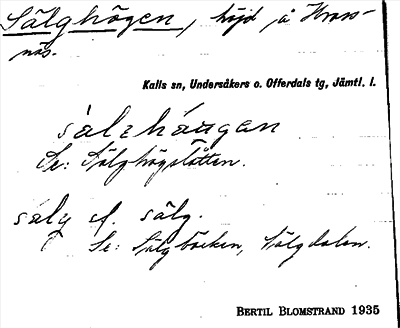 Sälghögen, höjd å Kross-
näs.
Kalls sn, Undersåkers o. Offerdals tg, Jämtl. l.
sàlzháugan
Se: Sälghögslåtten.
säly cf. sälg.
Se: Sälgbäcken, Sälgdalen.
BERTIL BLOMSTRAND 1935